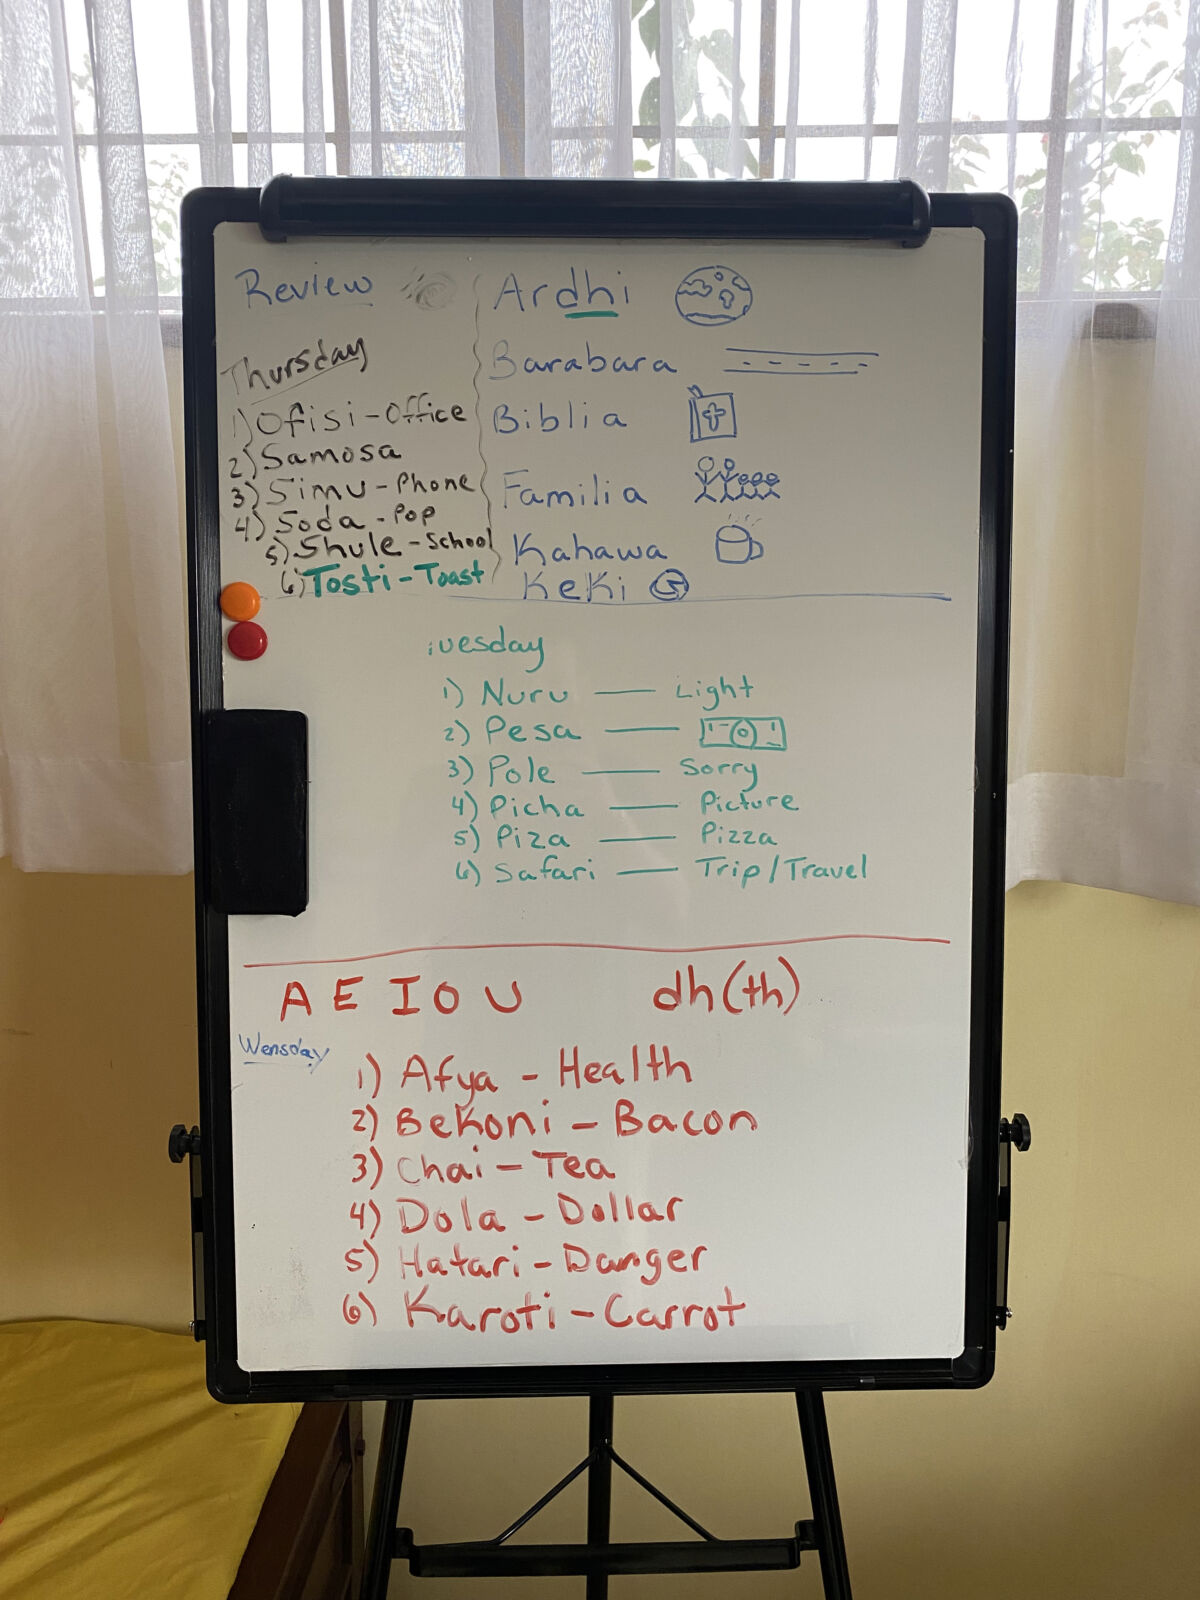 Review
Thursday
1) Ofisi - Office
2) Samosa
3) Simu - Phone
4) Soda - Pop
5) Shule - School
6) Tosti - Toast
Ardhi
Barabara
Biblia
Familia
Kahawa
Keki
Tuesday
1) Nuru — Light
2) Pesa —
3) Pole — Sorry
4) Picha — Picture
5) Piza — Pizza
6) Safari — Trip/Travel
A E I O U dh(th)
Wensday
1) Afya - Health
2) Bekoni - Bacon
3) Chai - Tea
4) Dola - Dollar
5) Hatari - Danger
6) Karoti - Carrot